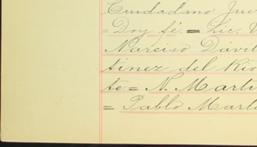 Ciudadano Jue
= Doy fé = Lic. V
Narciso Dávil
tinez del Rio
te = N. Marti
= Pablo Marti